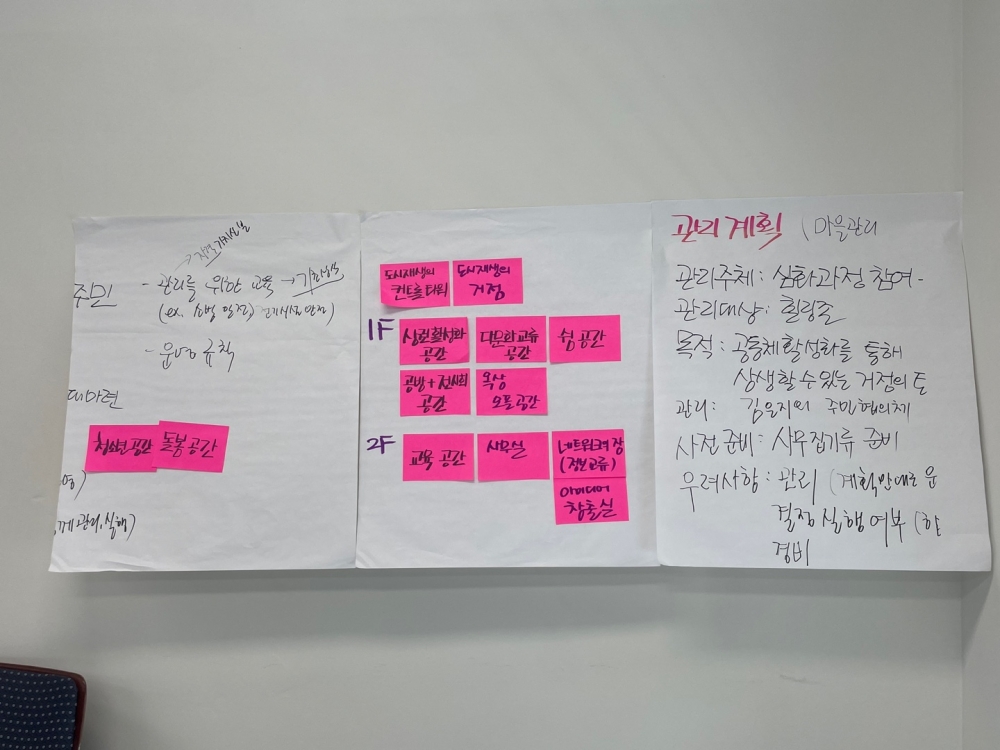 주민 - 관리를 위한 교육 →
(ex. 소방 안전, 전기시설 안전)
- 운영 규칙
대마련
청소년 공간 돌봄 공간
영)
께 관리, 실행)
도시재생의
컨트롤타워
도시재생의
거점
1F
상권활성화
공간
다문화교류
공간
쉼 공간
공방+전시회
공간
옥상
오픈공간
2F
교육 공간
사무실
네트워크의 장
(정보교류)
아이디어
창출실
관리 계획 (마을관리
관리주체: 심화과정 참여-
관리대상: 힐링존
목적: 공동체활성화를 통해
상생할 수 있는 거점의 토
관리: 김을지외 주민협의체
사전 준비: 사무집기류 준비
우려사항: 관리 (계획안대로 운
결정 실행여부 (한
경비